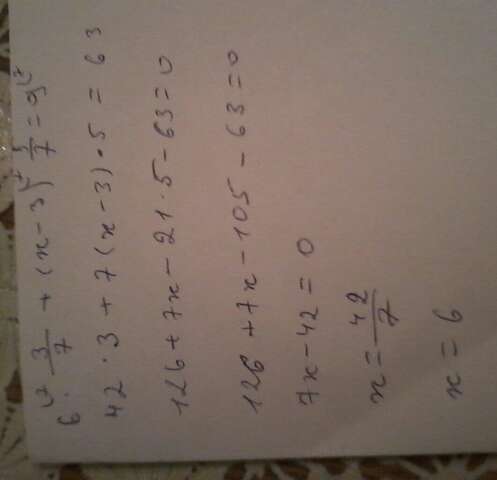 6 · 3/7 + (x-3) 5/7 = 9
42 · 3 + 7(x-3) · 5 = 63
126 + 7x - 21 · 5 - 63 = 0
126 + 7x - 105 - 63 = 0
7x - 42 = 0
x = 42/7
x = 6